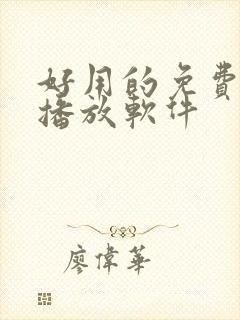 好用的免費
播放軟件
廖偉華